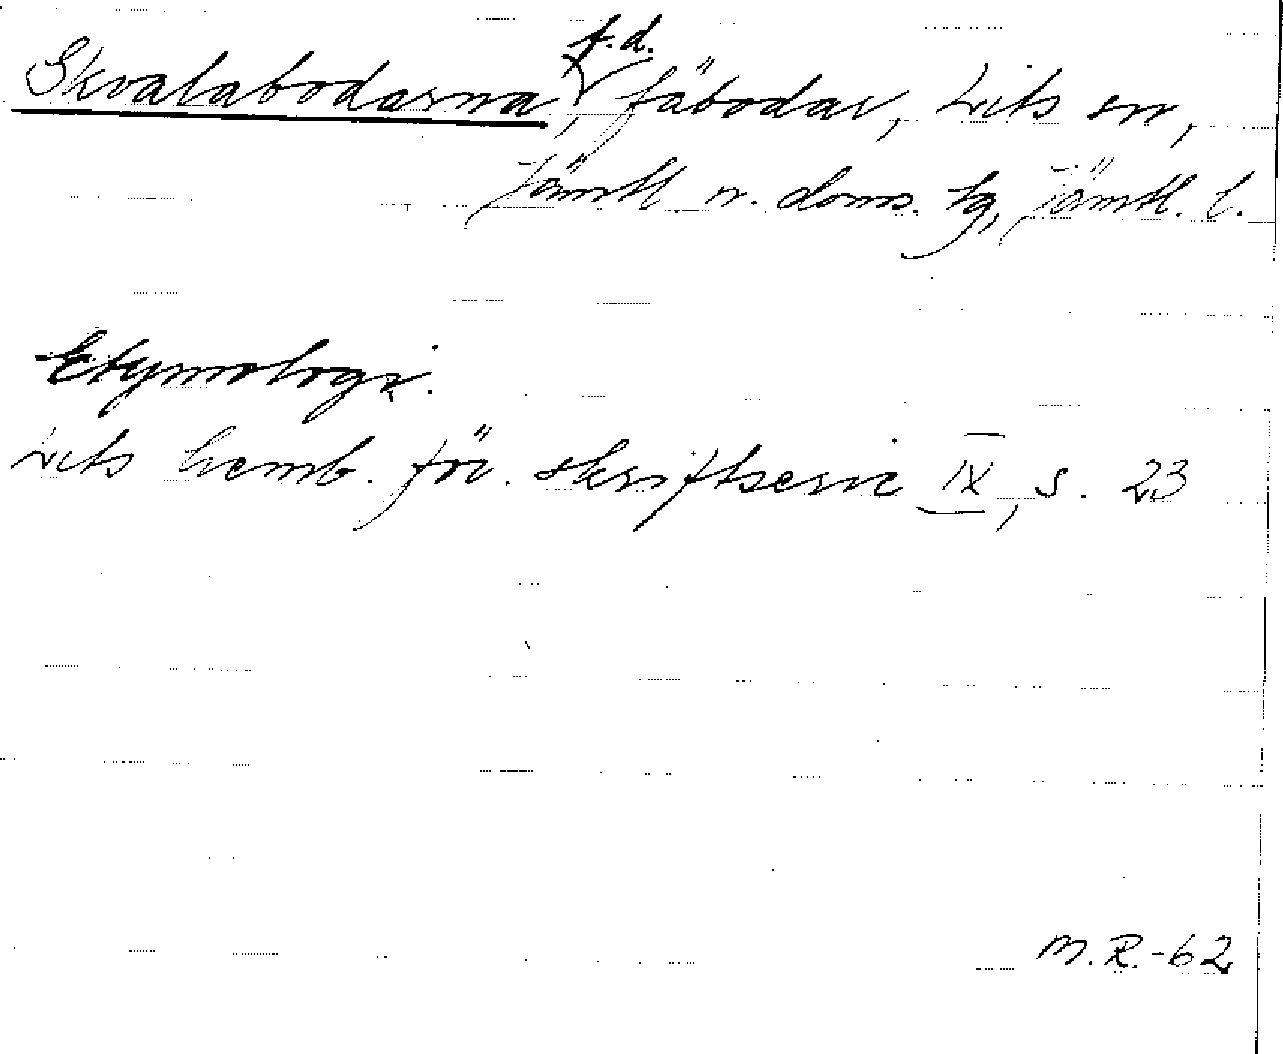 Skvalabodarna, f.d. fäbodar, Lits sn,
Jämtl n. doms. tg, Jämtl. l.
Etymologi.
Lits hemb. för. skriftserie IX, s. 23
M.R.-62